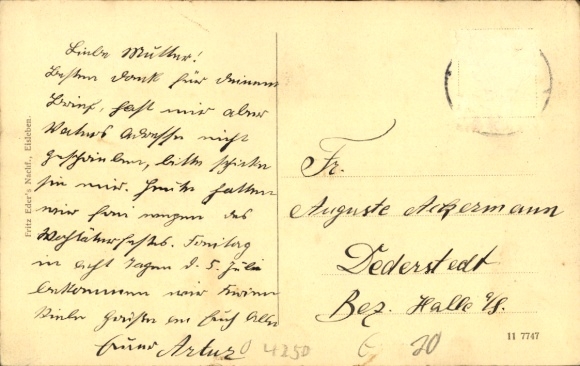 Liebe Mutter!
Besten Dank für Deinen
Brief, hast mir aber
Vaters Adresse nicht
geschrieben, bitte schicke
sie mir. Heute hatten
wir frei wegen des
Freitag
in acht Tagen d. 5. Juli
bekommen wir Ferien
Viele Grüße an Euch Alle
Euer Artur
Fr.
Auguste Ackermann
Dederstedt
Bez. Halle a/S.
Fritz Eder's Nachf., Eisleben.
11 7747
4250
20